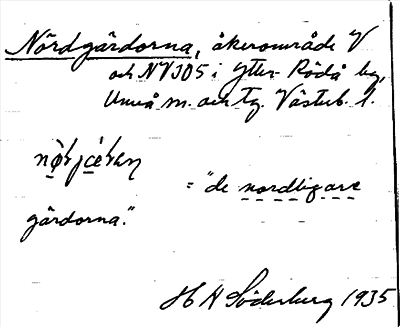 Nördgärdorna, åkerområde V
och NV om i Ytter-Rödå by,
Umeå sn. och tg. Västerb. l.
= "de nordligare
gärdorna."
H A Söderberg 1935